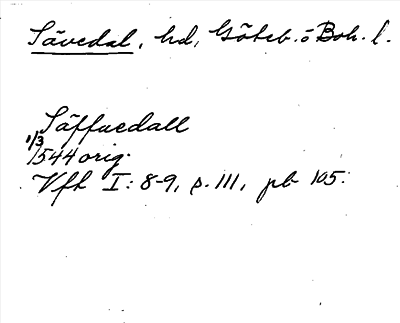 Sävedal, hd, Göteb. o Boh. l.
Säffuedall
1/3
1544 orig.
Vfh I: 8-9, s. 111, pb 105.